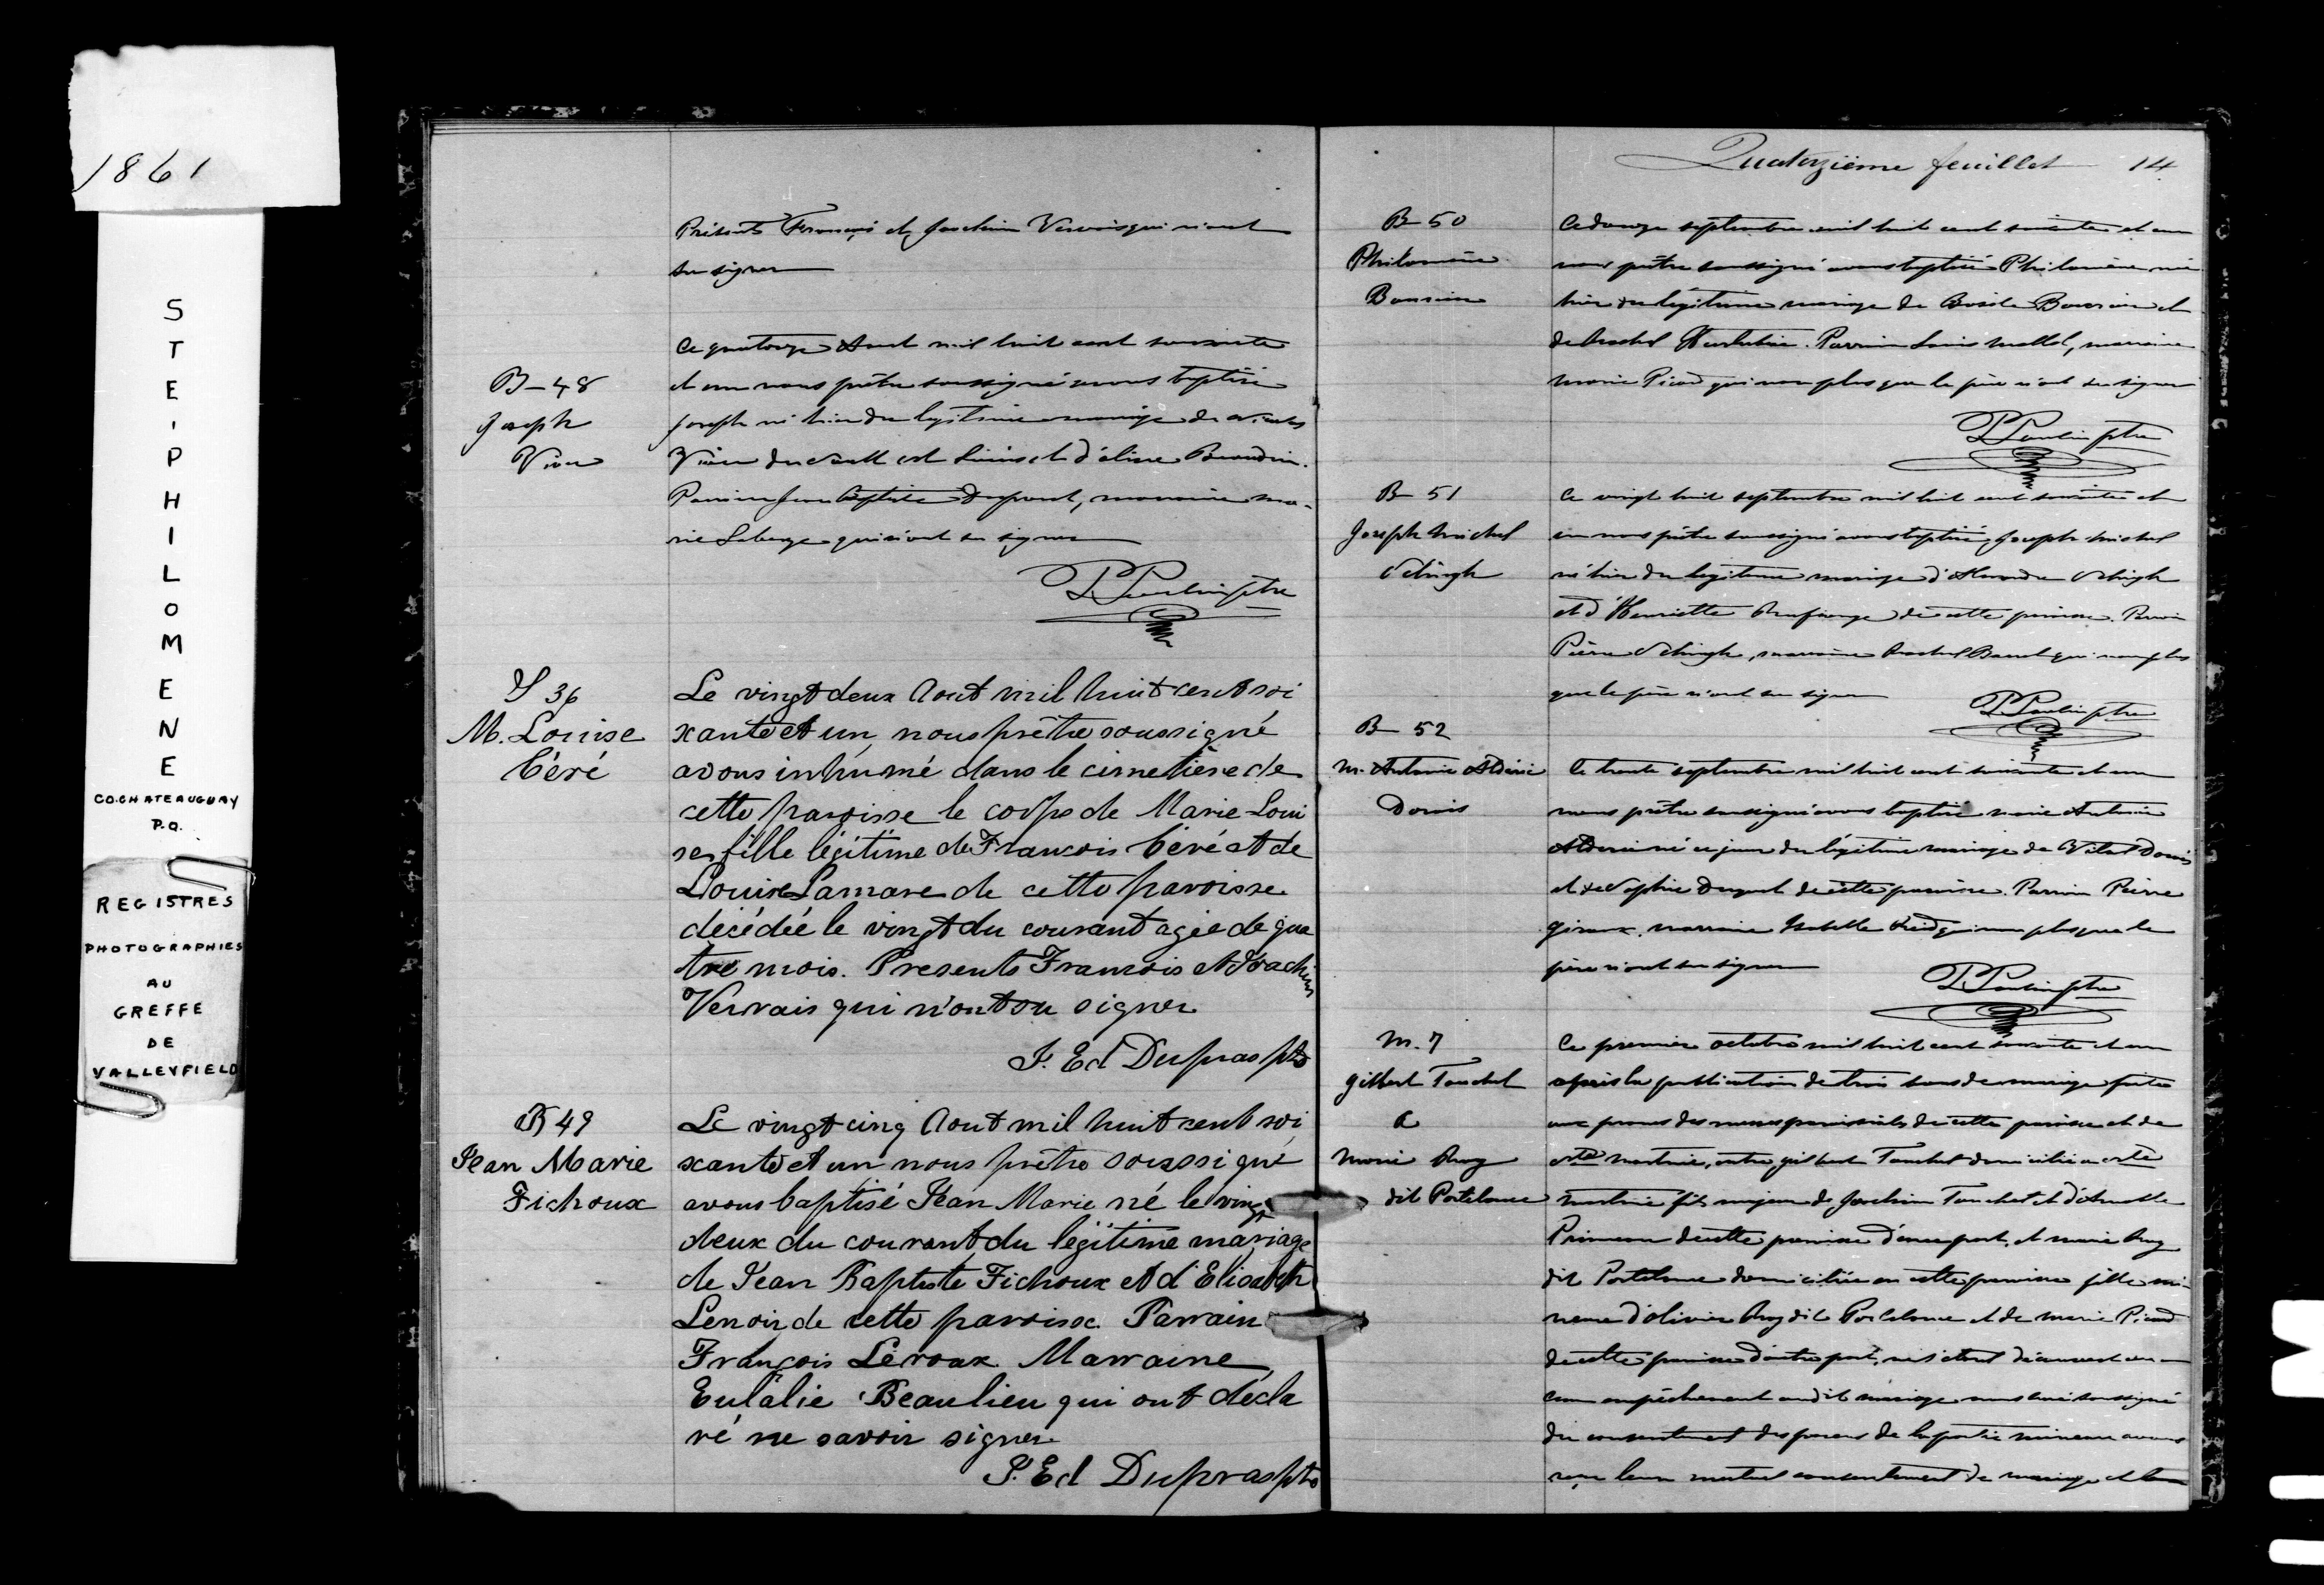 1861
STE. PHILOMENE
CO. CHATEAUGUAY
P.Q.
REGISTRES
PHOTOGRAPHIES
AU
GREFFE
DE
VALLEYFIELD
Présents François et Joachim Vervais qui n'ont
su signer
B-48
Joseph
Viau
Ce quatorze Aout mil huit cent soixante
et un nous prêtre soussigné avons baptisé
Joseph né hier du légitime mariage de
Viau du Sault St Louis et d'
Parrain Jean Baptiste Dupont, marraine Ma-
rie Laberge qui n'ont su signer
ptre
S 36
M. Louise
Céré
Le vingt deux Aout mil huit cent soi
xante et un nous prêtre soussigné
avons inhumé dans le cimetière de
cette paroisse le corps de Marie Loui
se, fille légitime de François Céré et de
Louise Lamare de cette paroisse
décédée le vingt du courant agée de qua
tre mois. Presents François et Joachim
Vervais qui n'ont su signer
J. Ed Dupras ptre
B 49
Jean Marie
Fichoux
Le vingt cinq Aout mil huit cent soi
xante et un nous prêtre soussigné
avons baptisé Jean Marie né le vingt
deux du courant du légitime mariage
de Jean Baptiste Fichoux et d'Elisabeth
Lenoir de cette paroisse. Parrain
François Leroux Marraine
Eulalie Beaulieu qui ont décla
ré ne savoir signer
J. Ed Dupras ptre
Quatorzième feuillet 14
B-50
Philomène
Ce douze septembre mil huit cent soixante et un
nous prêtre soussigné avons baptisé Philomène née
hier du légitime mariage de
de Parrain Louis marraine
Marie Picard qui non plus que le père n'ont su signer
ptre
B-51
Joseph Michel
Ce vingt huit septembre mil huit cent soixante et
un nous prêtre soussigné avons baptisé Joseph Michel
né hier du légitime mariage d'Alexandre
et d'Henriette de cette paroisse. Parrain
Pierre marraine qui non plus
que le père n'ont su signer
ptre
B-52
M. Antoine
Ce trente septembre mil huit cent soixante et un
nous prêtre soussigné avons baptisé Marie Antoine
né ce jour du légitime mariage de Vital
et de Sophie de cette paroisse. Parrain Pierre
Giroux, marraine Isabelle qui non plus que le
père n'ont su signer
ptre
M. 7
Gilbert Touchet
&
Marie Roy
dit Portelance
Ce premier octobre mil huit cent soixante et un
après la publication de trois bans de mariage faite
aux prones des messes paroissiales de cette paroisse et de
Ste Martine, entre Gilbert Touchet domicilié à Ste
Martine fils majeur de Joachim Touchet et d'
Primeau de cette paroisse d'une part, et Marie Roy
dit Portelance domiciliée en cette paroisse fille mi-
neure d'Olivier Roy dit Portelance et de Marie Picard
de cette paroisse d'autre part, ne s'étant découvert au-
cun empêchement au dit mariage nous curé soussigné
du consentement des parens de la partie mineure avons
reçu leur mutuel consentement de mariage et leur